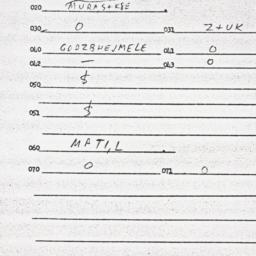 020
030 0 031 Z+UK
040 GODZBHEJMELE 041 0
042 — 043 0
050 $
051 $
060 MATI,L
070 0 071 0